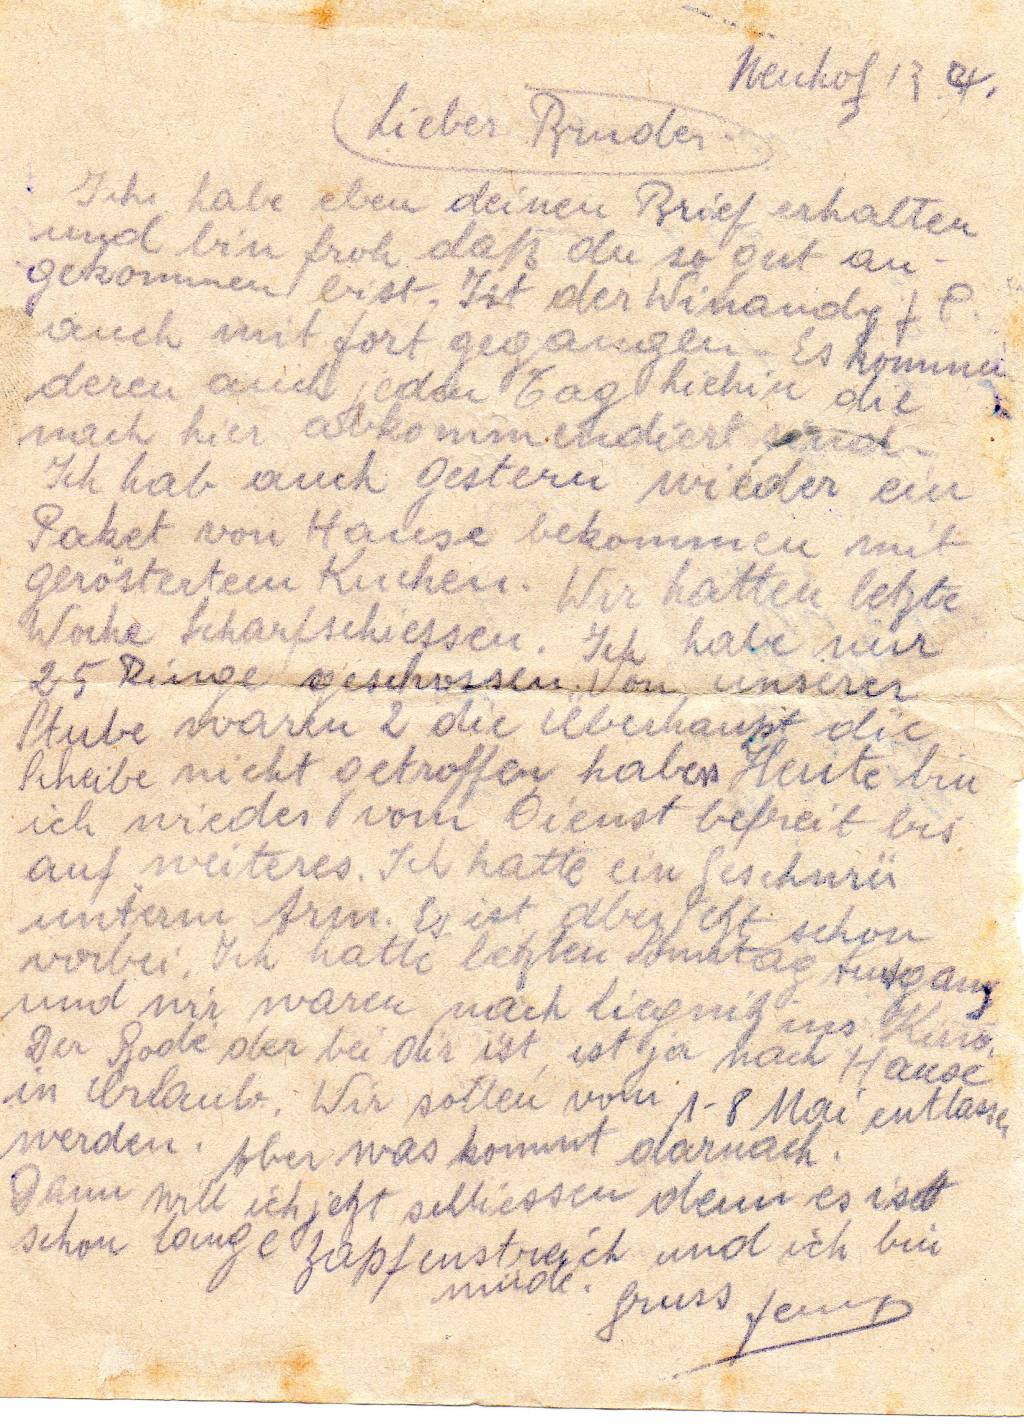 Neuhof 13.4.
Lieber Bruder.
Ich habe eben deinen Brief erhalten
und bin froh daß du so gut an-
gekommen bist. Ist der Winandy f C.
auch mit fort gegangen. Es kommen
deren auch jeden Tag hiehin die
nach hier abkommendiert sind.
Ich hab auch gestern wieder ein
Paket von Hause bekommen mit
geröstertem Kuchen. Wir hatten letzte
Woche Scharfschiessen. Ich habe nur
25 Ringe geschossen. Von unserer
Stube waren 2 die überhaupt die
Scheibe nicht getroffen haben Heute bin
ich wieder vom Dienst befreit bis
auf weiteres. Ich hatte ein Geschwür
unterm Arm. Es ist aber jetzt schon
vorbei. Ich hatte letzten Sonntag Ausgang
und wir waren nach Liegnitz ins Kino.
Der Bodé der bei dir ist, ist ja nach Hause
in Urlaub. Wir sollen vom 1-8 Mai entlassen
werden. Aber was kommt darnach.
Dann will ich jetzt schliessen denn es ist
schon lange Zapfenstreich und ich bin
müde. Gruss Jemp